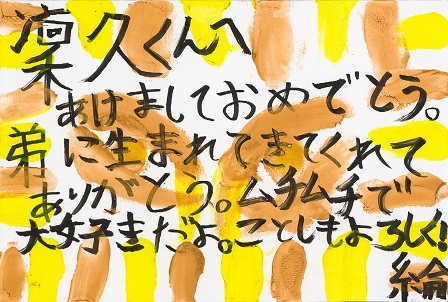 凜久くんへ
あけましておめでとう。
弟に生まれてきてくれて
ありがとう。ムチムチで
大好きだよ。ことしもよろしく!
綸